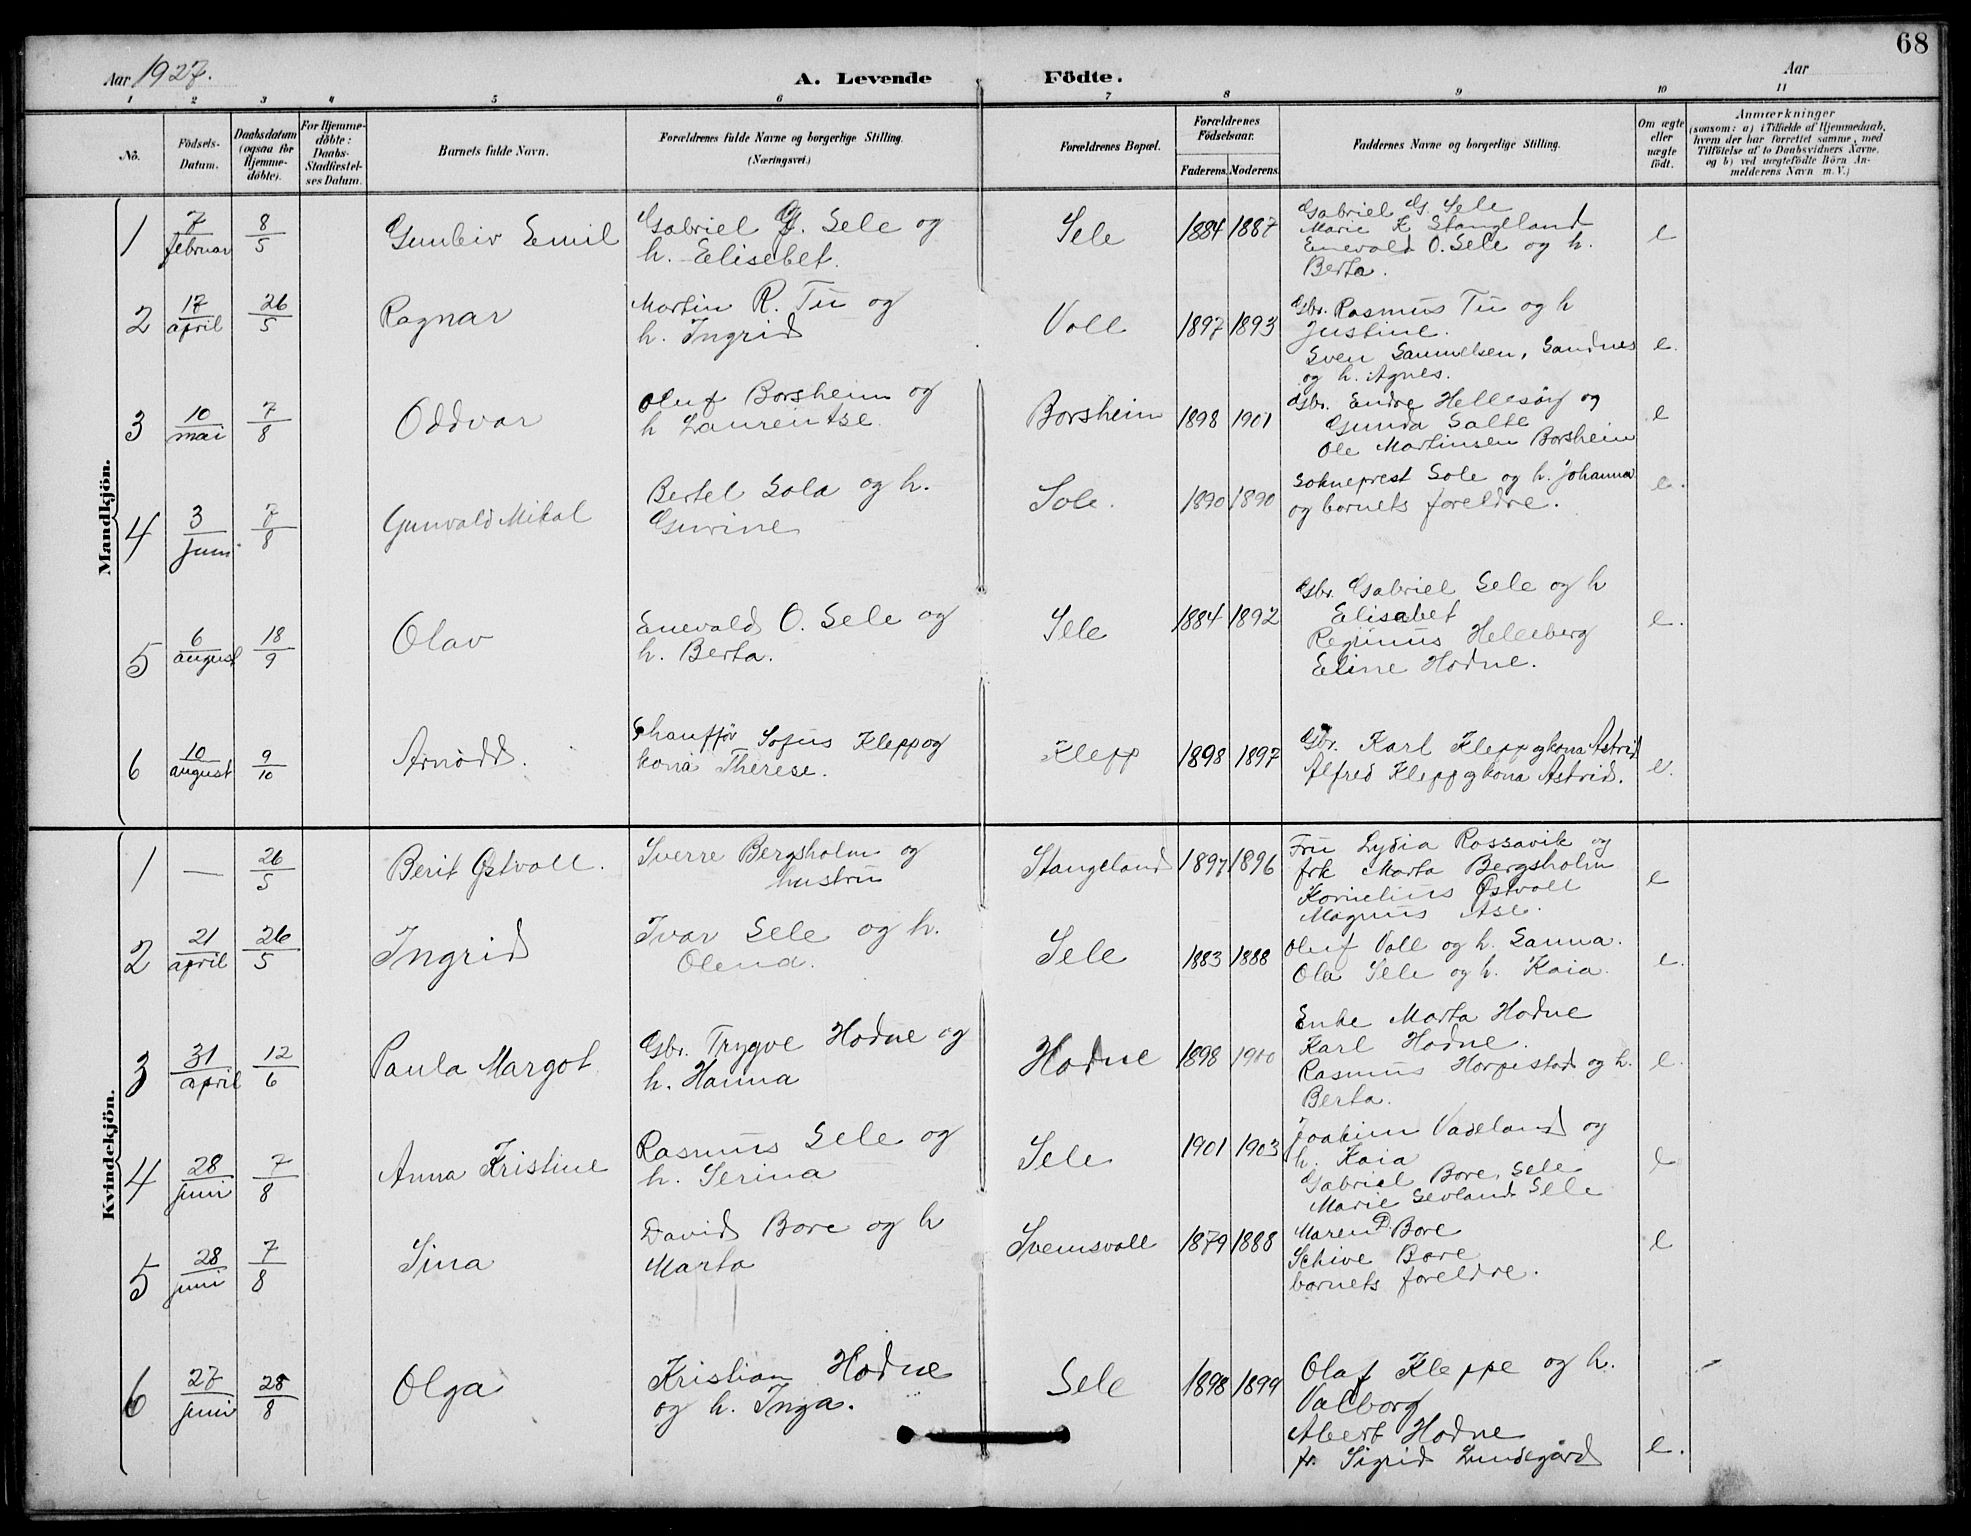 68
Aar 1927.
A. Levende Födte.
Aar
1 2 3 4 5 6 7 8 9 10 11
No.
Födsels-
Datum.
Daabsdatum
(ogsaa for
Hjemme-
døbte).
For Hjemme-
döbte:
Daabs-
Stadfæstel-
ses Datum.
Barnets fulde Navn.
Forældrenes fulde Navne og borgerlige Stilling.
(Næringsvei.)
Forældrenes Bopæl.
Forældrenes
Födselsaar.
Faderens. Moderens.
Faddernes Navne og borgerlige Stilling.
Om ægte
eller
uægte
født.
Anmærkninger
(saasom: a) i Tilfælde af Hjemmedaab,
hvem der har forrettet samme, med
Tilföielse af to Daabsvidners Navne,
og b) ved uægtefödte Börn An-
melderens Navn m. V.)
Mandkjön.
1 7 februar 8/5 Gunleiv Emil Gabriel G. Sele og
h. Elisebet.
Sele 1884 1887 Gabriel G. Sele
Marie K Stangeland
Enevald O. Sele og h.
Berta.
e
2 17 april 26/5 Ragnar Martin R. Tu og
h. Ingrid
Voll 1897 1893 Gbr. Rasmus Tu og h
Justine.
Sven Samuelsen, Sandnes
og h. Agnes.
e.
3 10 mai 7/8 Oddvar Oluf Borsheim og
h Laurentse
Borsheim 1898 1901 Gbr. Endre Hellesöy og
Gunda Salte
Ole Martinsen Borsheim
e
4 3 juni 7/8 Gunvald Mikal Bertel Sola og h.
Gurine
Sole. 1890 1890 Sokneprest Sole og h. Johanna
og barnets foreldre.
e.
5 6 august 18/9 Olav Enevald O. Sele og
h. Berta.
Sele 1884 1892 Gbr. Gabriel Sele og h
Elisabet
Reginus Helleberg
Eline Hodne.
e.
6 10 august 9/10 Arnödd. Chaufför Sofus Klepp og
kona Therese.
Klepp 1898 1897 Gbr. Karl Klepp og kona Astrid
Alfred Klepp og kona Astrid.
e.
Kvindekjön.
1 — 26/5 Berit Østvoll. Sverre Bergsholm og
hustru
Stangeland 1897 1896 Fru Lydia Rossavik og
frk Marta Bergsholm
Kornelius Østvoll
Magnus Ase.
e
2 21 april 26/5 Ingrid Ivar Sele og h.
Olena.
Sele 1883 1888 Oluf Voll og h. Sanna.
Ola Sele og h. Kaia.
e.
3 31 april 12/6 Paula Margot Gbr. Trygve Hodne og
h. Hanna
Hodne 1898 1900 Enke Marta Hodne
Karl Hodne.
Rasmus Horpestad og h.
Berta.
e.
4 28 juni 7/8 Anna Kristine Rasmus Sele og
h. Serina
Sele 1901 1903 Joakim Vadeland og
h. Kaia
Gabriel Bore, Sele
Marie Sevland Sele
e
5 28 juni 7/8 Sina David Bore og h
Marta
Svensvoll 1879 1888 Maren P. Bore
Schive Bore
barnets foreldre.
e
6 27 juni 28/8 Olga Kristian Hodne
og h. Inga.
Sele 1898 1899 Olaf Kleppe og h.
Valborg
Albert Hodne
fr. Sigrid Lundegård
e.